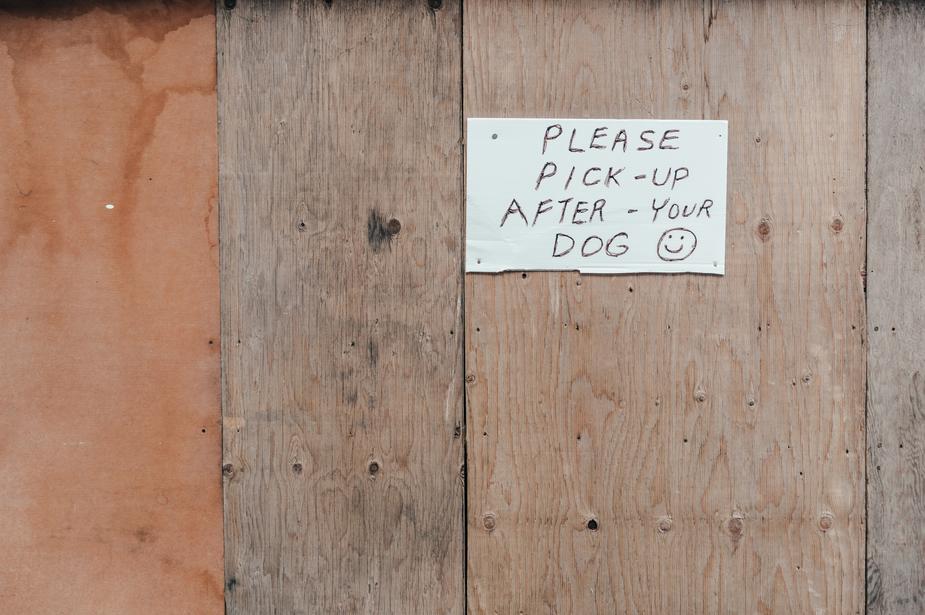 PLEASE
PICK-UP
AFTER - YOUR
DOG ☺